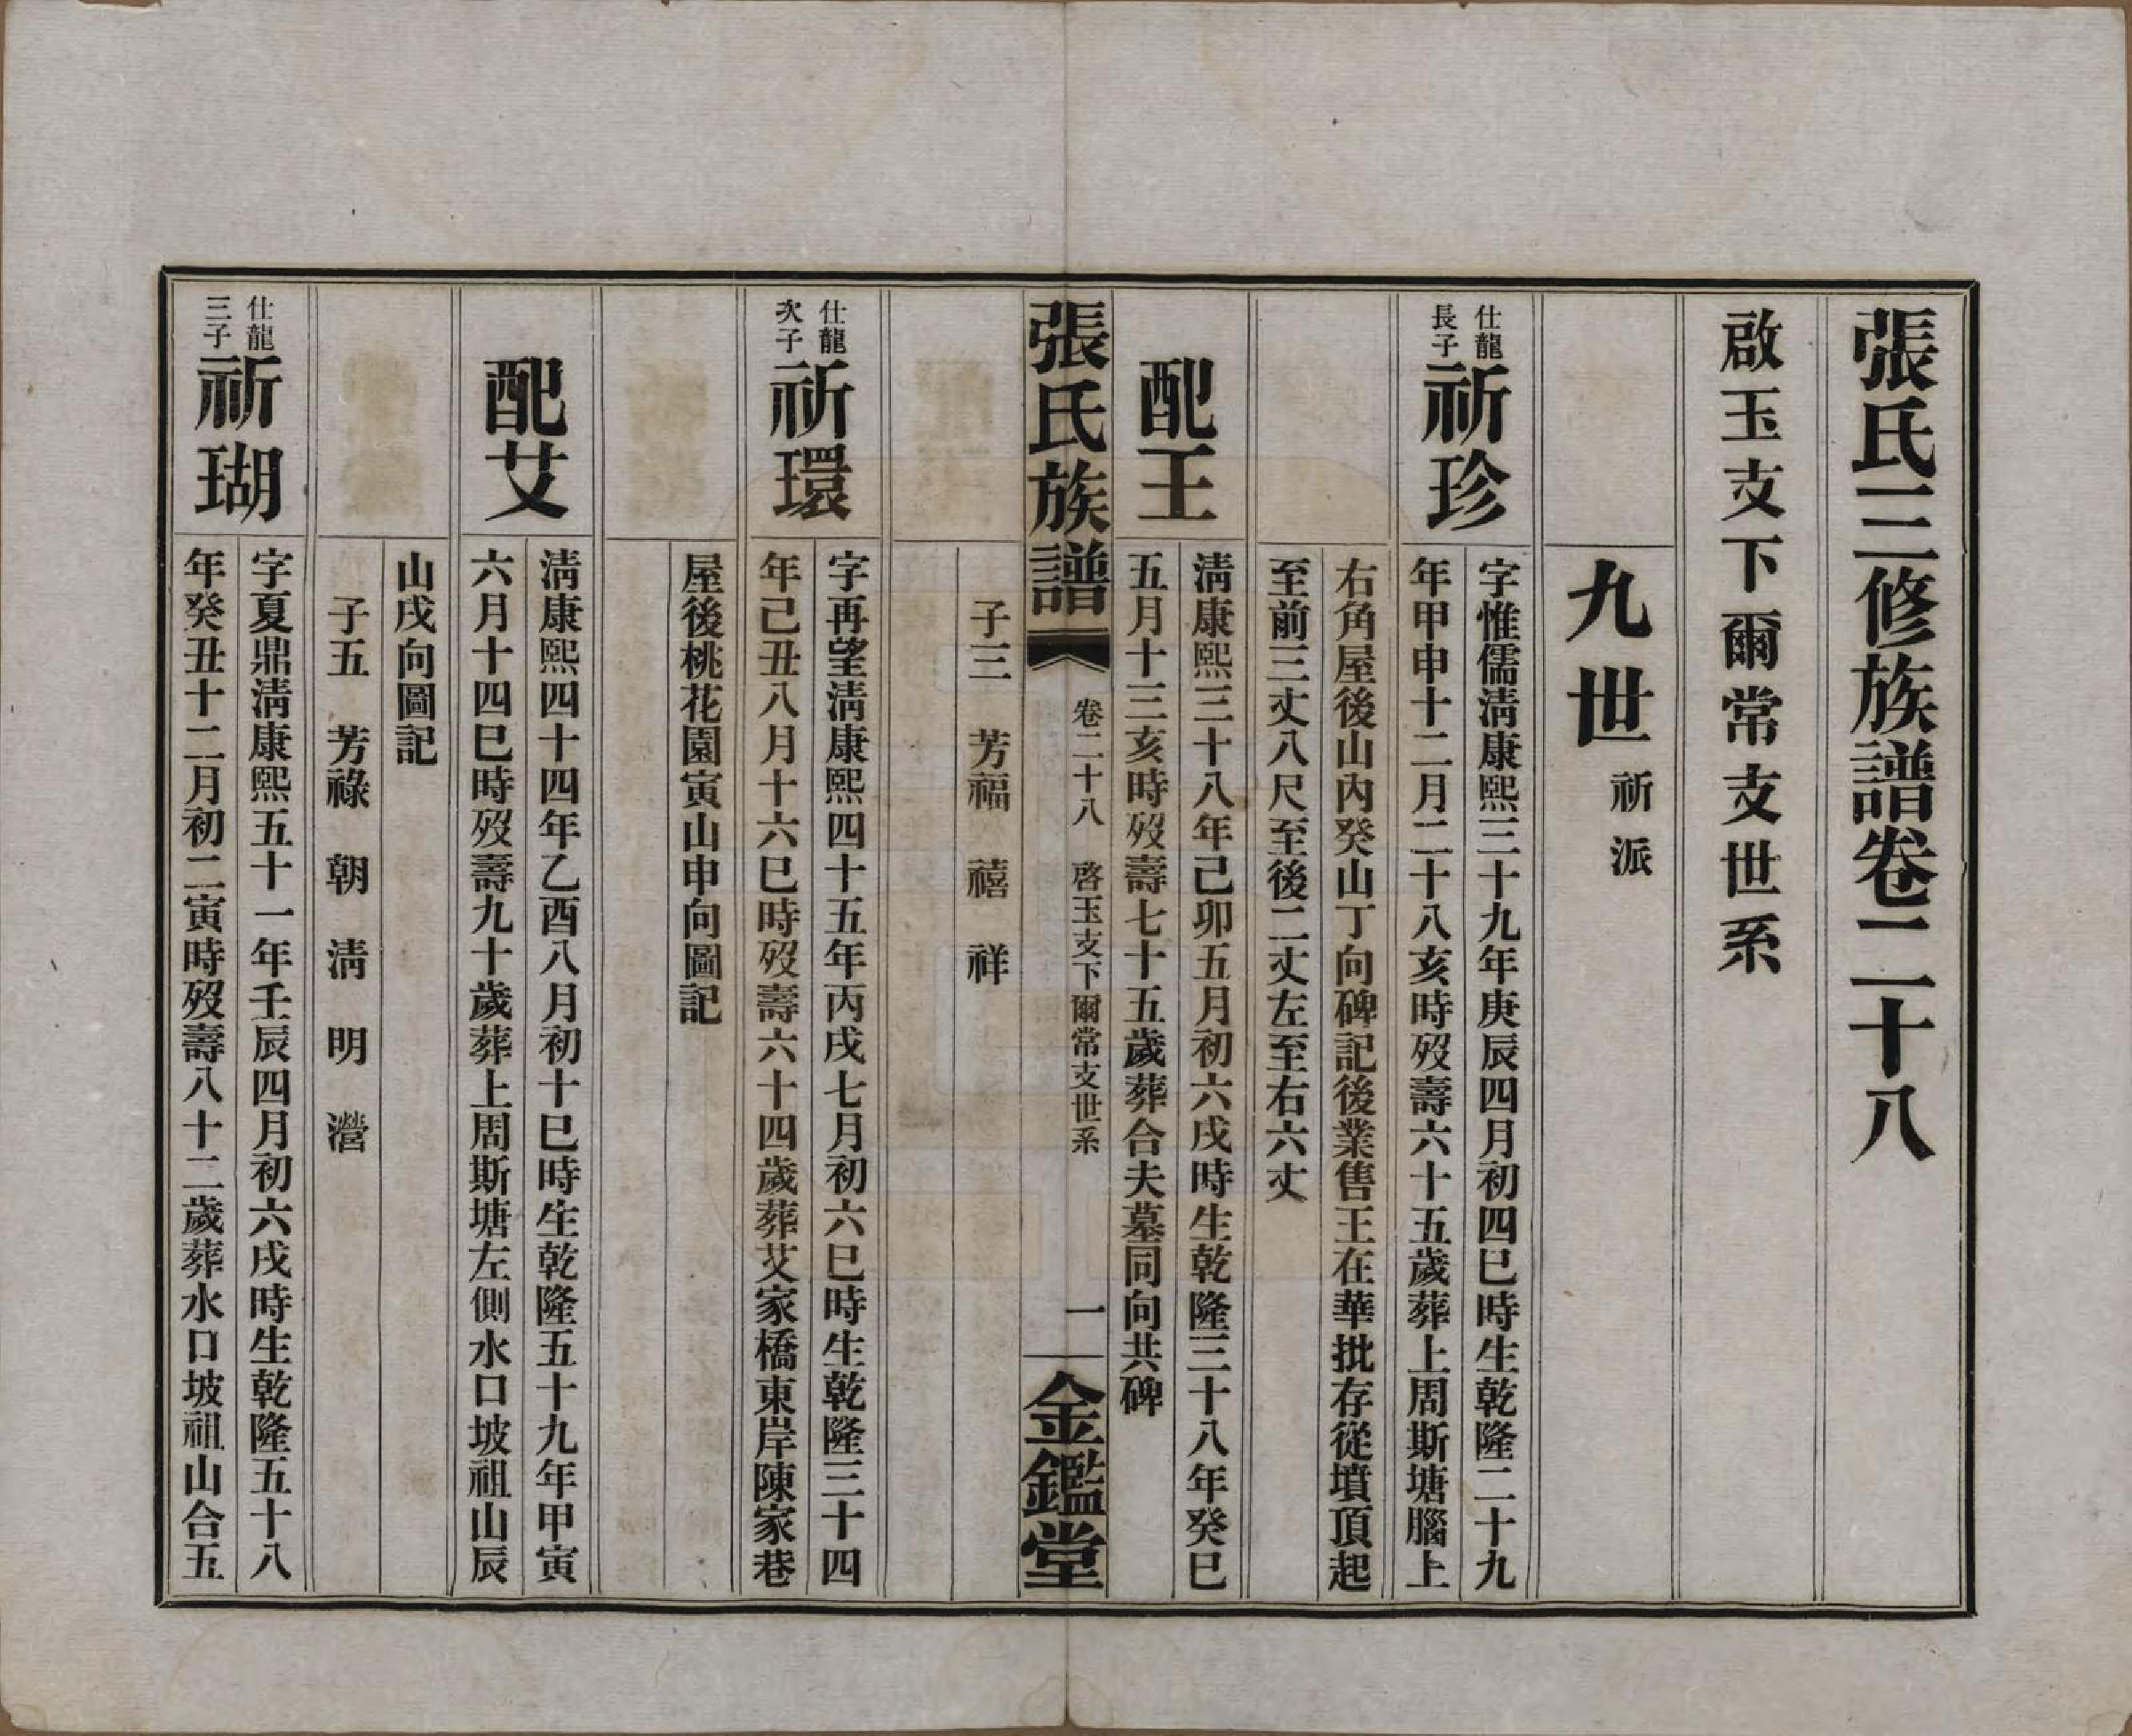 張氏三修族譜卷二十八
啟玉支下爾常支世系
九世 祈派
仕龍
長子
祈珍
字惟儒清康熙三十九年庚辰四月初四巳時生乾隆二十九
年甲申十二月二十八亥時歿壽六十五歲葬上周斯塘腦上
右角屋後山內癸山丁向碑記後業售王在華批存從墳頂起
至前三丈八尺至後二丈左至右六丈
配王
清康熙三十八年己卯五月初六戌時生乾隆三十八年癸巳
五月十三亥時歿壽七十五歲葬合夫墓同向共碑
張氏族譜 卷二十八 啓玉支下爾常支世系 一 金鑑堂
子三 芳福 禧 祥
仕龍
次子
祈環
字再望清康熙四十五年丙戌七月初六巳時生乾隆三十四
年己丑八月十六巳時歿壽六十四歲葬艾家橋東岸陳家巷
屋後桃花園寅山申向圖記
配艾
清康熙四十四年乙酉八月初十巳時生乾隆五十九年甲寅
六月十四巳時歿壽九十歲葬上周斯塘左側水口坡祖山辰
山戌向圖記
子五 芳祿 朝 清 明 瀯
仕龍
三子
祈瑚
字夏鼎清康熙五十一年壬辰四月初六戌時生乾隆五十八
年癸丑十二月初二寅時歿壽八十二歲葬水口坡祖山合五